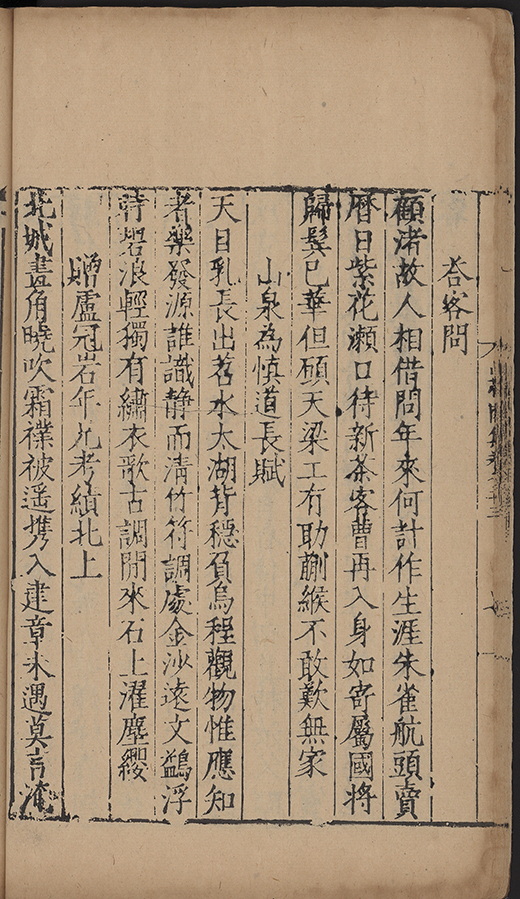 荅客問
顧渚故人相借問年來何計作生涯朱雀航頭賣
曆日紫花瀨口待新茶客曹再入身如寄屬國將
歸鬂已華但願天梁工有助蒯緱不敢歎無家
山泉為慎道長賦
天目乳長出苕水太湖背穩負烏程觀物惟應知
者樂發源誰識静而清竹符調處金沙遠文鷁浮
時碧浪輕獨有繡衣歌古調閒來石上濯塵纓
贈盧冠岩年兄考績北上
北城畫角曉吹霜襆被遥携入建章未遇莫言淹